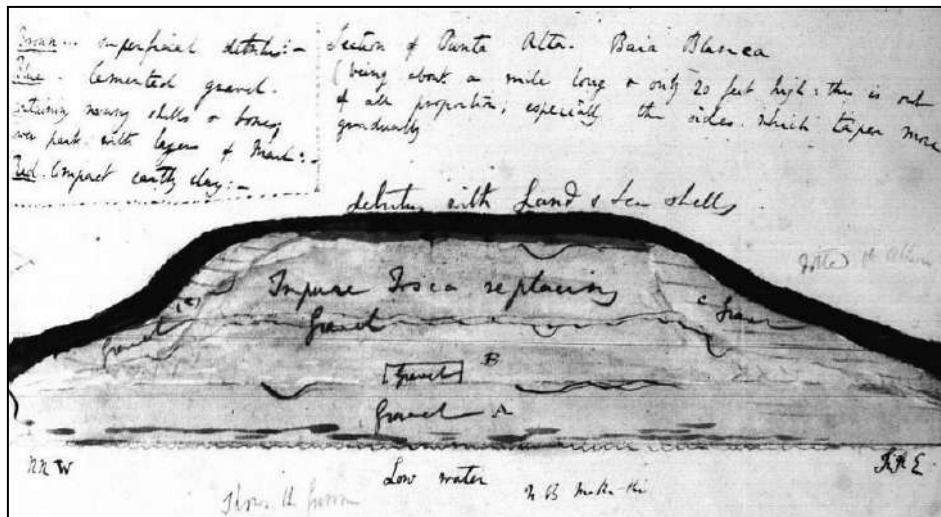 Brown... superficial detritus:—
Blue. Cemented gravel.
containing many shells & bones
over parts with layers of Marl:—
Red. Compact earthy clay:—
Section of Punta Alta. Baia Blanca
(being about a mile long & only 20 feet high: this is out
of all proportion; especially the sides which taper more
gradually
detritus with Land & Sea shells
Impure Tosca replacing
Gravel
(C)
Gravel
C Gravel
B
[Gravel]
Gravel A
NNW
Low water
N B